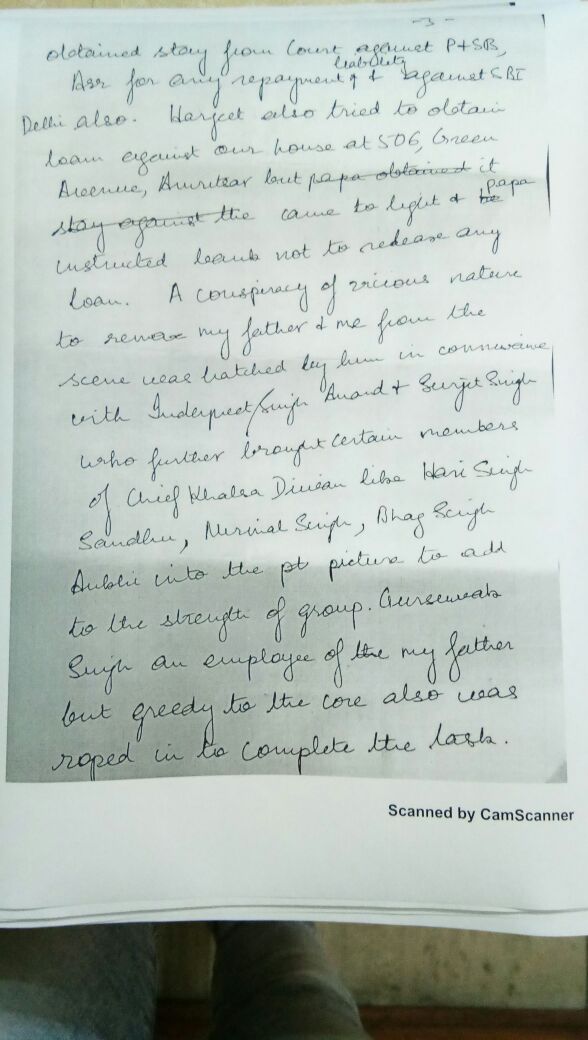 - 3 -
obtained stay from Court against P+SB,
liability
Asr for any repayment of & against SBI
Delhi also. Harjeet also tried to obtain
loan against our house at 506, Green
Avenue, Amritsar but papa obtained it
stay against the came to light & he papa
instructed bank not to redease any
loan. A conspiracy of vicious nature
to remove my father & me from the
scene was hatched by him in connivance
with Inderpreet Singh Anand & Surjit Singh
who further brought certain members
of Chief Khalsa Diwan like Hari Singh
Sandhu, Nirmal Singh, Bhag Singh
into the pt picture to add
to the strength of group. Gursewak
Singh an employee of the my father
but greedy to the core also was
roped in to complete the task.
Scanned by CamScanner